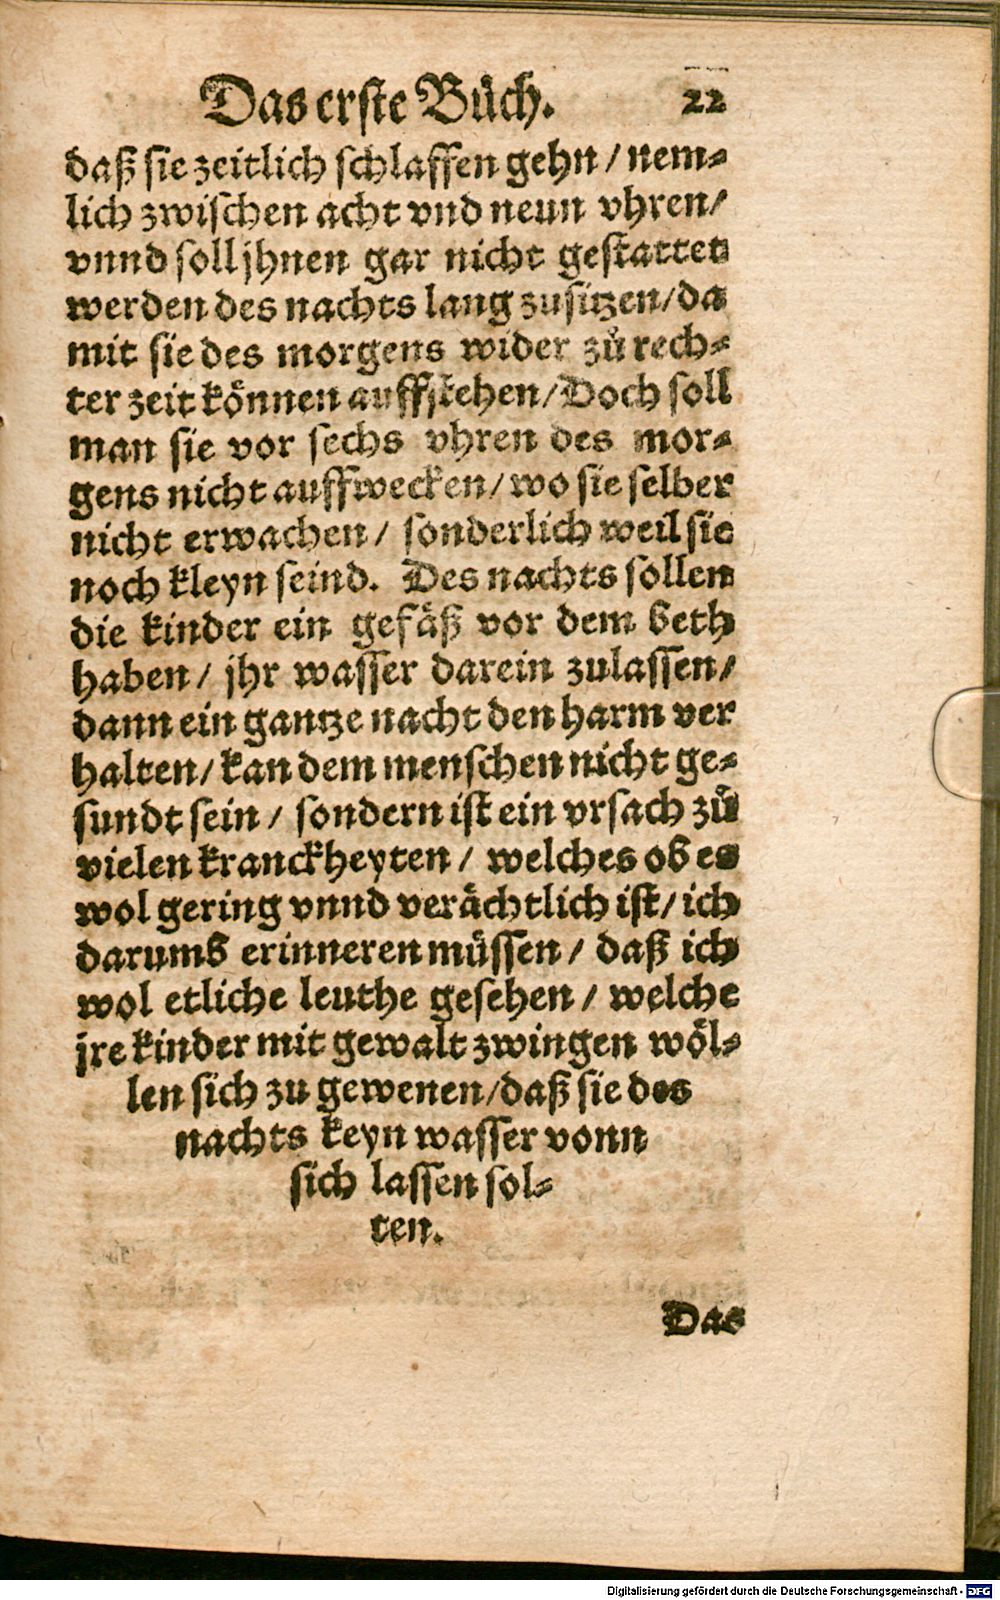 Das erste Bůch. 22
daß sie zeitlich schlaffen gehn / nem⸗
lich zwischen acht vnd neun vhren /
vnnd soll jhnen gar nicht gestattet
werden des nachts lang zusitzen / da
mit sie des morgens wider zů rech⸗
ter zeit können auffstehen / Doch soll
man sie vor sechs vhren des mor⸗
gens nicht auffwecken / wo sie selber
nicht erwachen / sonderlich weil sie
noch kleyn seind. Des nachts sollen
die kinder ein gefäß vor dem beth
haben / jhr wasser darein zulassen /
dann ein gantze nacht den harm ver
halten / kan dem menschen nicht ge⸗
sundt sein / sondern ist ein vrsach zů
vielen kranckheyten / welches ob es
wol gering vnnd verächtlich ist / ich
darumb erinneren müssen / daß ich
wol etliche leuthe gesehen / welche
jre kinder mit gewalt zwingen wöl⸗
len sich zu gewenen / daß sie des
nachts keyn wasser vonn
sich lassen sol⸗
ten.
Das
Digitalisierung gefördert durch die Deutsche Forschungsgemeinschaft - DFG